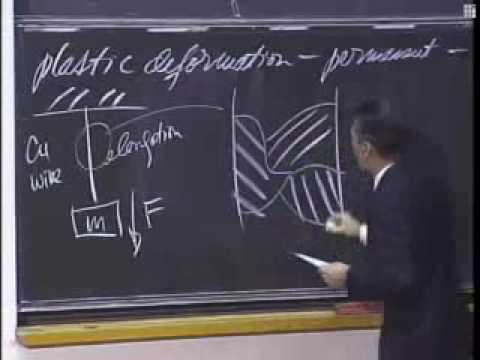 plastic deformation - permanent -
Cu
wire
elongation
m
F